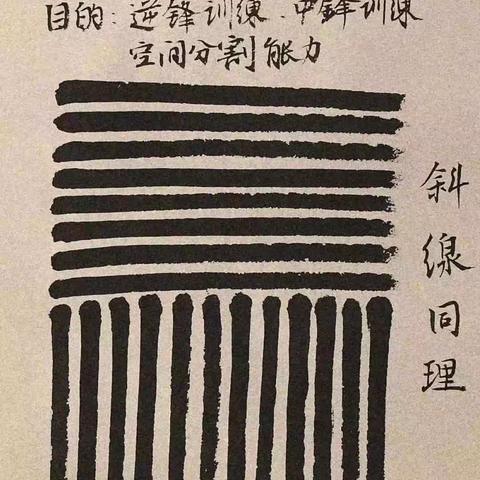 目的：逆锋训练、中鋒训练
空间分割能力
斜線同理